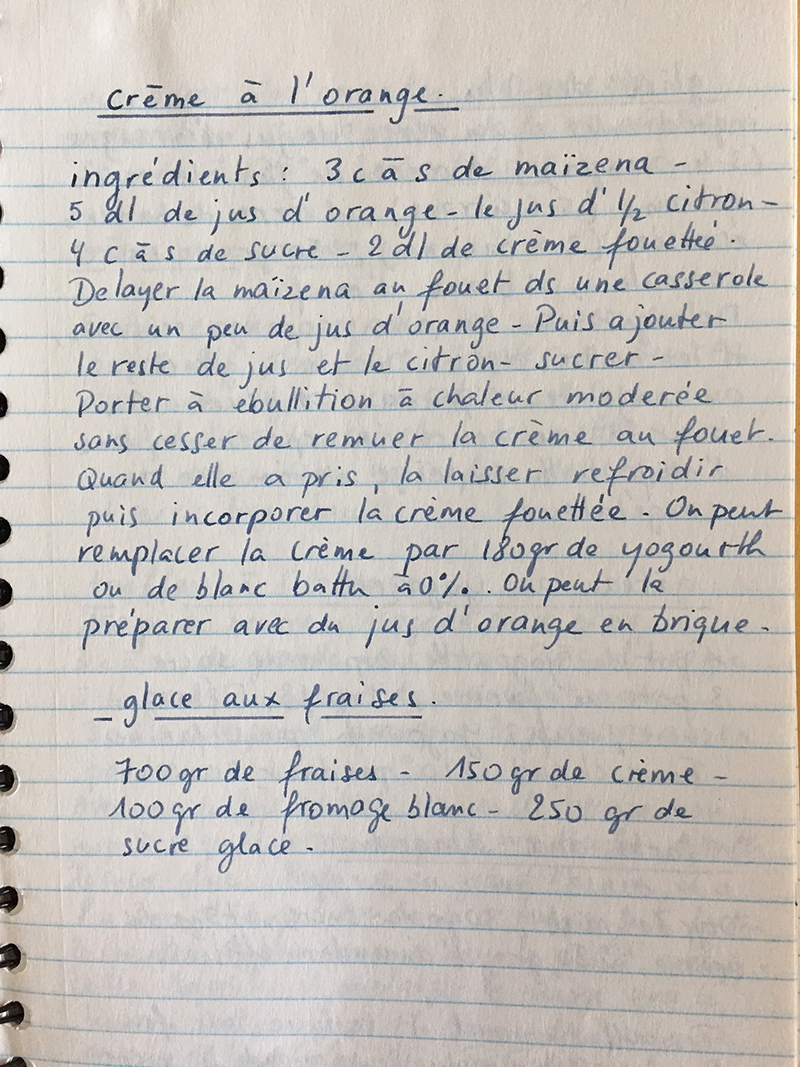 crème à l'orange.
ingrédients : 3 c à s de maïzena -
5 dl de jus d'orange - le jus d'1/2 citron -
4 c à s de sucre - 2 dl de crème fouettée.
Delayer la maïzena au fouet ds une casserole
avec un peu de jus d'orange - Puis ajouter
le reste de jus et le citron - sucrer -
Porter à ebullition à chaleur moderée
sans cesser de remuer la crème au fouet.
Quand elle a pris, la laisser refroidir
puis incorporer la crème fouettée. On peut
remplacer la crème par 180 gr de yogourth
ou de blanc battu à 0%. On peut la
préparer avec du jus d'orange en brique.
- glace aux fraises.
700 gr de fraises - 150 gr de crème -
100 gr de fromage blanc - 250 gr de
sucre glace.